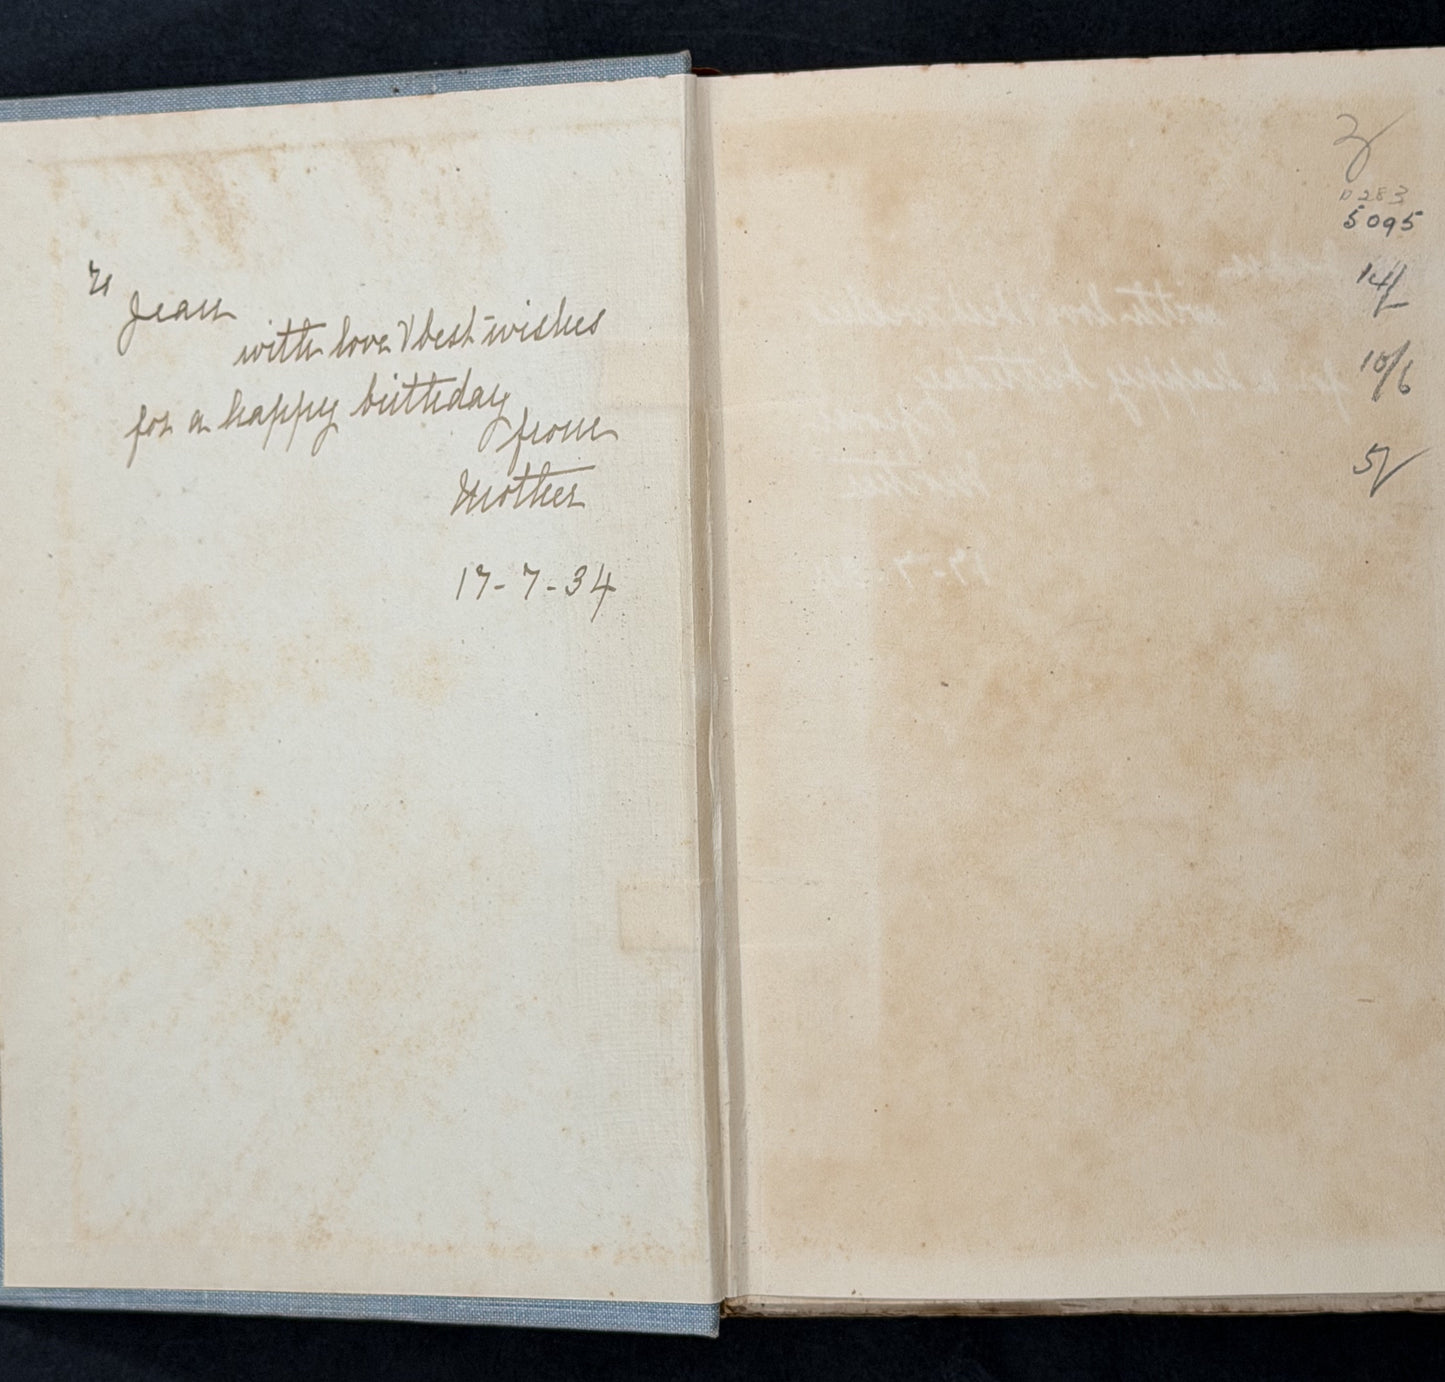 To
Jean
with love & best wishes
for a happy birthday
from
Mother
17-7-34
D283
5095
14/-
10/6
5/-